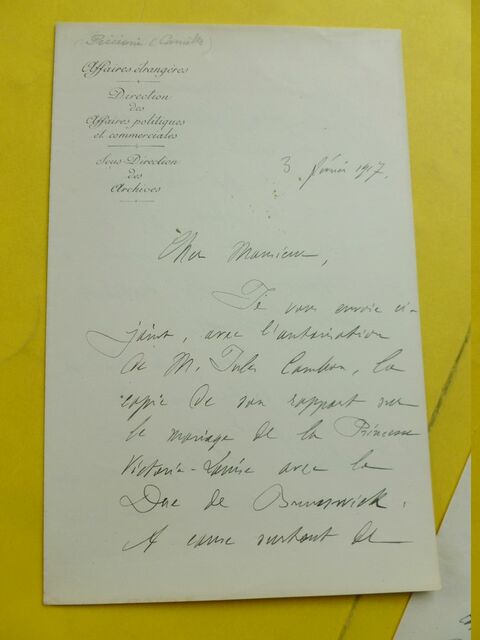 Piccioni (Camille)
Affaires étrangères
Direction
des
Affaires politiques
et commerciales
Sous-Direction
des
Archives
3 février 1917.
Cher Monsieur,
Je vous envoie ci-
joint, avec l'autorisation
de M. Jules Cambon, la
copie de son rapport sur
le mariage de la Princesse
Victoria-Louise avec le
Duc de Brunswick.
A cause surtout de